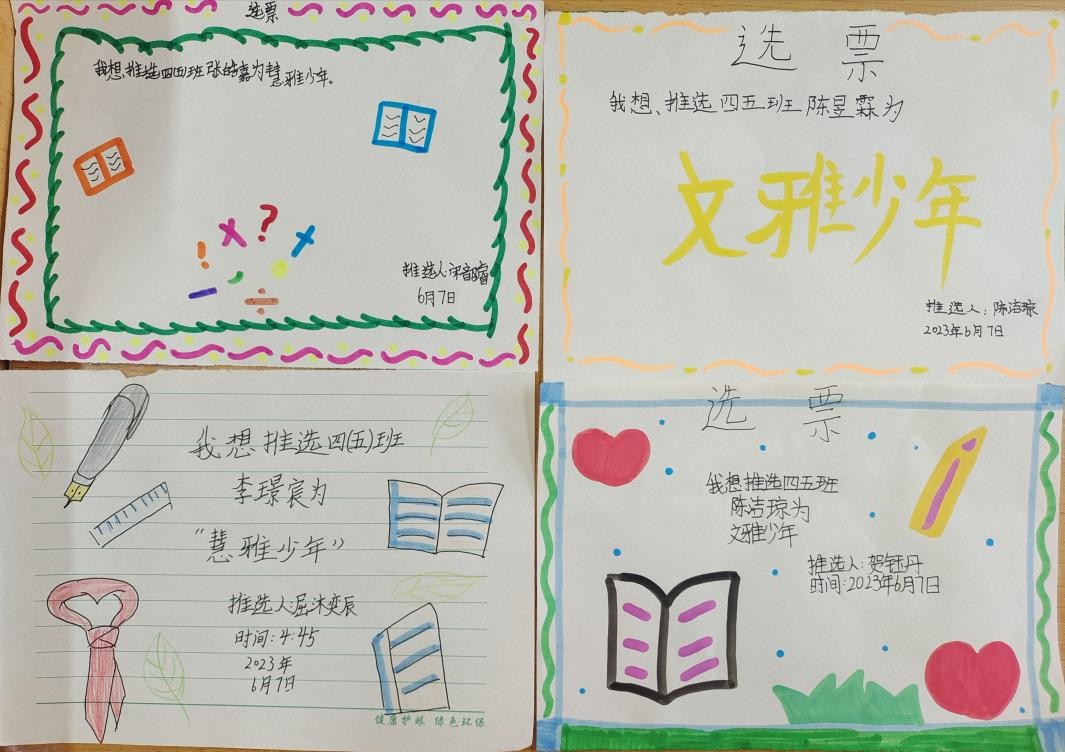 选票
我想推选四(五)班张皓嘉为慧雅少年。
推选人:宋音睿
6月7日
选 票
我想推选四五班陈昱霖为
文雅少年
推选人:陈洁琼
2023年6月7日
我想推选四(五)班
李璟宸为
“慧雅少年”
推选人:屈沐奕辰
时间:4:45
2023年
6月7日
健康护眼 绿色环保
选 票
我想推选四五班
陈洁琼为
文雅少年
推选人:贺钰丹
时间:2023年6月7日